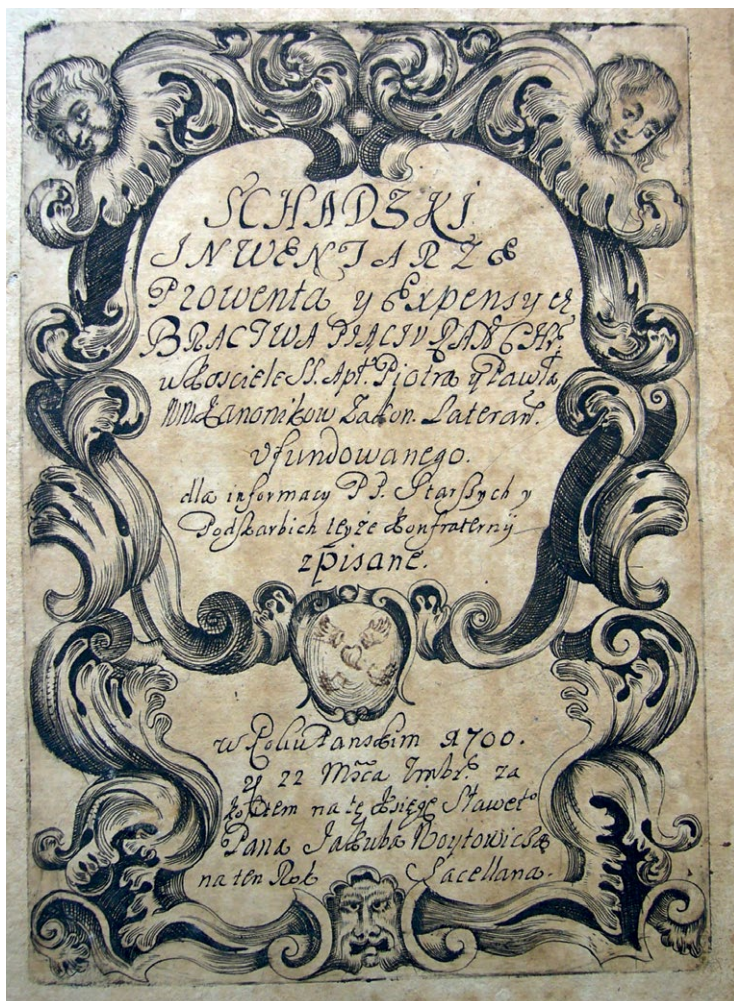 SCHADZKI
INWENTARZE
Prowenta y Expensy
BRACTWA PIĄCIU RAN CHR̃
w Kosciele SS. Apt. Piotra y Pawła
Kanonikow Zakon. Lateran.
vfundowanego.
dla informacy P.P. Starszych y
Podskarbich teyże Konfraternij
zpisane.
w Roku Panskim 1700.
22 Mca za
na tę Księgę Sławet⁰
Pana Jakuba Woytowicza
na ten Rok Sacellana.